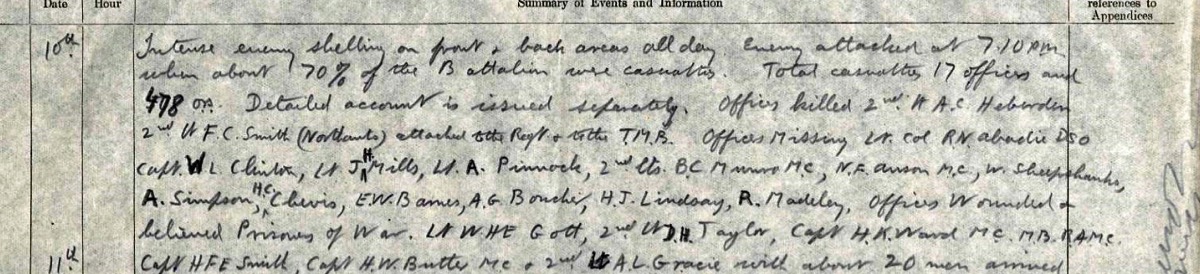 Date Hour Summary of Events and Information references to Appendices
10th Intense enemy shelling on front & back areas all day. Enemy attacked at 7.10 PM
when about 70% of the Battalion were casualties. Total casualties 17 officers and
478 OR. Detailed account is issued separately. Officers killed 2nd Lt A.C. Heberden
2nd Lt F.C. Smith (Northants) attached to the Regt & to the T.M.B. Officers Missing Lt. Col R.N. abadie DSO
Capt. W L Clinton, Lt J H Mills, Lt. A. Pinnock, 2nd Lts. BC Munro MC, N.F. anson M.C., W. Sheepshanks,
A. Simpson, H.C. Chevis, E.W. Barnes, A.G. Boucher, H.J. Lindsay, R. Madeley, Officers Wounded &
believed Prisoners of War. Lt WHE Gott, 2nd Lt D.H. Taylor, Capt H.K. Ward M.C. M.B. RAMC.
11th Capt HFE Smith, Capt H.W. Butler MC & 2nd Lt A L. Gracie with about 20 men arrived